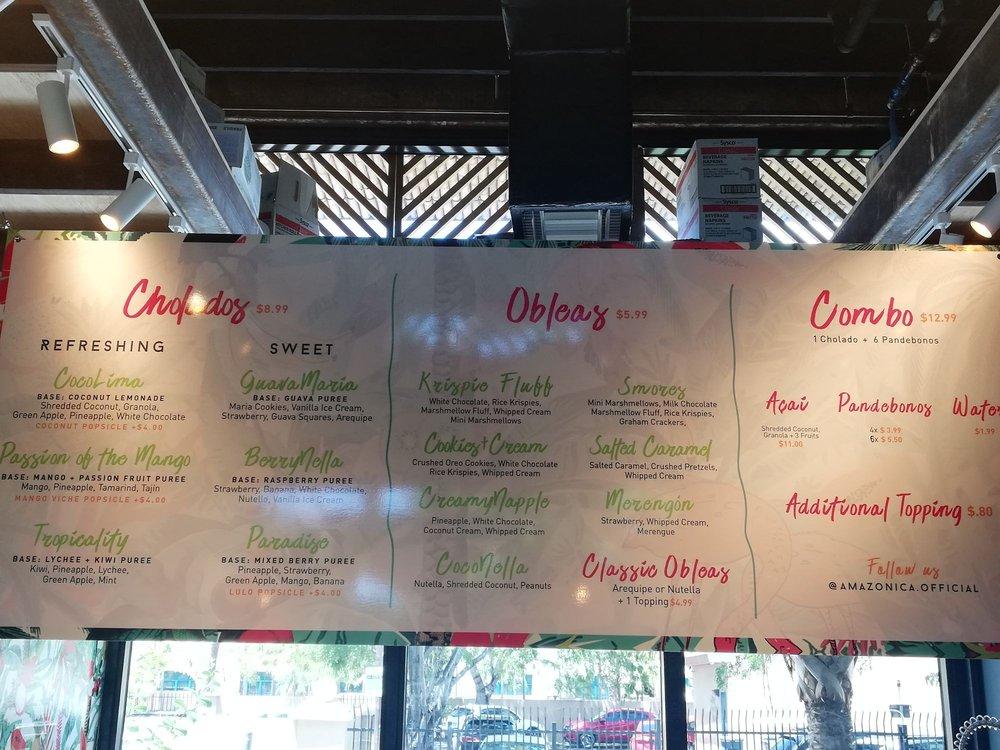 Sysco
BEVERAGE
NAPKINS
Sysco
BEVERAGE
NAPKINS
Cholados $8.99
REFRESHING
CocoLima
BASE: COCONUT LEMONADE
Shredded Coconut, Granola,
Green Apple, Pineapple, White Chocolate
COCONUT POPSICLE +$4.00
Passion of the Mango
BASE: MANGO + PASSION FRUIT PUREE
Mango, Pineapple, Tamarind, Tajín
MANGO VICHE POPSICLE +$4.00
Tropicality
BASE: LYCHEE + KIWI PUREE
Kiwi, Pineapple, Lychee,
Green Apple, Mint
SWEET
GuavaMaria
BASE: GUAVA PUREE
Maria Cookies, Vanilla Ice Cream,
Strawberry, Guava Squares, Arequipe
BerryNella
BASE: RASPBERRY PUREE
Strawberry, Banana, White Chocolate,
Nutella, Vanilla Ice Cream
Paradise
BASE: MIXED BERRY PUREE
Pineapple, Strawberry,
Green Apple, Mango, Banana
LULO POPSICLE +$4.00
Obleas $5.99
Krispie Fluff
White Chocolate, Rice Krispies,
Marshmallow Fluff, Whipped Cream
Mini Marshmellows
Cookies+Cream
Crushed Oreo Cookies, White Chocolate
Rice Krispies, Whipped Cream
CreamyNapple
Pineapple, White Chocolate,
Coconut Cream, Whipped Cream
CocoNella
Nutella, Shredded Coconut, Peanuts
Smores
Mini Marshmellows, Milk Chocolate
Marshmellow Fluff, Rice Krispies,
Graham Crackers,
Salted Caramel
Salted Caramel, Crushed Pretzels,
Whipped Cream
Merengón
Strawberry, Whipped Cream,
Merengue
Classic Obleas
Arequipe or Nutella
+ 1 Topping $4.99
Combo $12.99
1 Cholado + 6 Pandebonos
Açaí
Shredded Coconut,
Granola + 3 Fruits
$11.00
Pandebonos
4x $ 3.99
6x $ 5.50
Water
$1.99
Additional Topping $.80
Follow us
@AMAZONICA.OFFICIAL